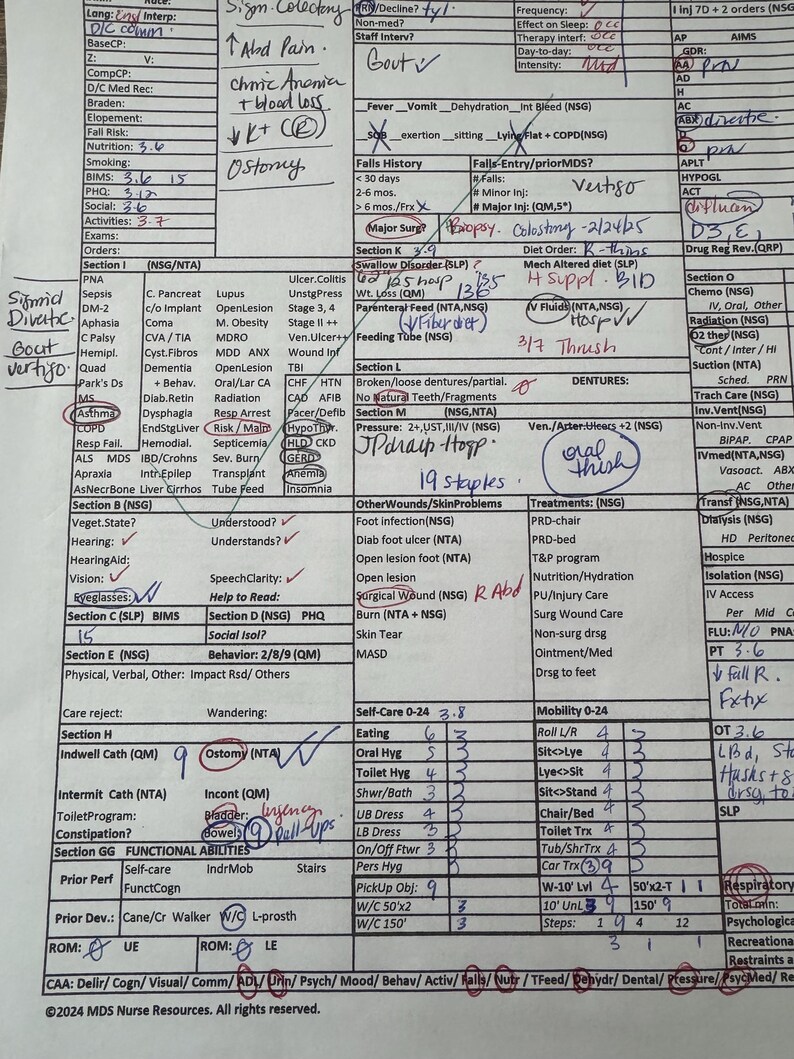 Lang: Eng Interp:
D/C comm.
BaseCP:
Z: V:
CompCP:
D/C Med Rec:
Braden:
Elopement:
Fall Risk:
Nutrition: 3.6
Smoking:
BIMS: 3.6 15
PHQ: 3.12
Social: 3.6
Activities: 3.7
Exams:
Orders:
Sigm. Colectomy
↑ Abd Pain.
chronic Anemia
+ blood loss
↓ K+
Ostomy
/Decline?
Non-med?
Staff Interv?
Gout ✓
Frequency: ✓
Effect on Sleep: occ
Therapy interf: occ
Day-to-day: occ
Intensity: Mod
__Fever __Vomit __Dehydration __Int Bleed (NSG)
__SOB __exertion __sitting __Lying Flat + COPD(NSG)
Falls History
< 30 days
2-6 mos.
> 6 mos./Frx X
Falls-Entry/priorMDS?
# Falls: Vertigo
# Minor Inj:
# Major Inj: (QM,5*)
Major Surg? Biopsy. Colostomy -2/24/25
I Inj 7D + 2 orders (NSG
AP AIMS
GDR:
AA prn
AD
H
AC
ABX diverti
D
O prn
APLT
HYPOGL
ACT
diflucan
D3,
Drug Reg Rev.(QRP)
Section K 3.9 Diet Order: R-thins
Swallow Disorder(SLP) ? Mech Altered diet (SLP)
62" 125 hosp 135
Wt. Loss (QM) 136 H Suppl. BID
Parenteral Feed (NTA,NSG) IV Fluids(NTA,NSG)
(↓Fiber diet) Hosp ✓✓
Feeding Tube (NSG) 3/7 Thrush
Section L
Broken/loose dentures/partial. DENTURES:
No Natural Teeth/Fragments
Section M (NSG,NTA)
Pressure: 2+,UST,III/IV (NSG) Ven./Arter.Ulcers +2 (NSG)
JP drain - Hosp.
19 staples.
oral
thrush
Sigmid
Divertic.
Gout
vertigo.
Section I (NSG/NTA)
PNA Ulcer.Colitis
Sepsis C. Pancreat Lupus UnstgPress
DM-2 c/o Implant OpenLesion Stage 3, 4
Aphasia Coma M. Obesity Stage II ++
C Palsy CVA / TIA MDRO Ven.Ulcer++
Hemipl. Cyst.Fibros MDD ANX Wound Inf
Quad Dementia OpenLesion TBI
Park's Ds + Behav. Oral/Lar CA CHF HTN
MS Diab.Retin Radiation CAD AFIB
Asthma Dysphagia Resp Arrest Pacer/Defib
COPD EndStgLiver Risk / Maln HypoThyr.
Resp Fail. Hemodial. Septicemia HLD CKD
ALS MDS IBD/Crohns Sev. Burn GERD
Apraxia Intr.Epilep Transplant Anemia
AsNecrBone Liver Cirrhos Tube Feed Insomnia
Section O
Chemo (NSG)
IV, Oral, Other
Radiation (NSG)
O2 ther (NSG)
Cont / Inter / HI
Suction (NTA)
Sched. PRN
Trach Care (NSG)
Inv.Vent(NSG)
Non-Inv.Vent
BiPAP. CPAP
IVmed(NTA,NSG)
Vasoact. ABX
AC Other
Transf (NSG,NTA)
Dialysis (NSG)
HD Peritone
Hospice
Isolation (NSG)
IV Access
Per Mid C
FLU: N/O PNA:
PT 3.6
↓ Fall R.
Fx hx
OT 3.6
LBd, St
Husks + 8
drsg, to
SLP
Section B (NSG)
Veget.State? Understood? ✓
Hearing: ✓ Understands? ✓
HearingAid:
Vision: ✓ SpeechClarity: ✓
Eyeglasses: ✓✓ Help to Read:
Section C (SLP) BIMS Section D (NSG) PHQ
15 Social Isol?
Section E (NSG) Behavior: 2/8/9 (QM)
Physical, Verbal, Other: Impact Rsd/ Others
Care reject: Wandering:
OtherWounds/SkinProblems
Foot infection(NSG)
Diab foot ulcer (NTA)
Open lesion foot (NTA)
Open lesion
Surgical Wound (NSG) R Abd
Burn (NTA + NSG)
Skin Tear
MASD
Treatments: (NSG)
PRD-chair
PRD-bed
T&P program
Nutrition/Hydration
PU/Injury Care
Surg Wound Care
Non-surg drsg
Ointment/Med
Drsg to feet
Section H
Indwell Cath (QM) 9 Ostomy (NTA) ✓✓
Intermit Cath (NTA) Incont (QM)
ToiletProgram: Bladder: urgency
Constipation? Bowel: 9 pull-ups
Self-Care 0-24 3.8 Mobility 0-24
Eating 6 3 Roll L/R 4 3
Oral Hyg 5 3 Sit<>Lye 4 3
Toilet Hyg 4 3 Lye<>Sit 4 3
Shwr/Bath 3 3 Sit<>Stand 4 3
UB Dress 4 3 Chair/Bed 4 3
LB Dress 3 3 Toilet Trx 4 3
On/Off Ftwr 3 3 Tub/ShrTrx 4 3
Pers Hyg 3 Car Trx 3 9 3
PickUp Obj: 9 W-10' Lvl 4 50'x2-T 1 1
W/C 50'x2 3 10' UnL 3 9 150' 9
W/C 150' 3 Steps: 1 9 4 12
3 1 1
Section GG FUNCTIONAL ABILITIES
Prior Perf Self-care IndrMob Stairs
FunctCogn
Prior Dev.: Cane/Cr Walker W/C L-prosth
ROM: 0 UE ROM: 0 LE
Respiratory
Total min:
Psychologica
Recreationa
Restraints a
CAA: Delir/ Cogn/ Visual/ Comm/ ADL/ Urin/ Psych/ Mood/ Behav/ Activ/ Falls/ Nutr / TFeed/ Dehydr/ Dental/ Pressure/ PsycMed/ Re
©2024 MDS Nurse Resources. All rights reserved.